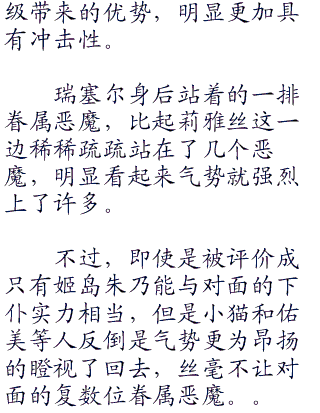 级带来的优势，明显更加具
有冲击性。
瑞塞尔身后站着的一排
眷属恶魔，比起莉雅丝这一
边稀稀疏疏站在了几个恶
魔，明显看起来气势就强烈
上了许多。
不过，即使是被评价成
只有姬岛朱乃能与对面的下
仆实力相当，但是小猫和佑
美等人反倒是气势更为昂扬
的瞪视了回去，丝毫不让对
面的复数位眷属恶魔。。